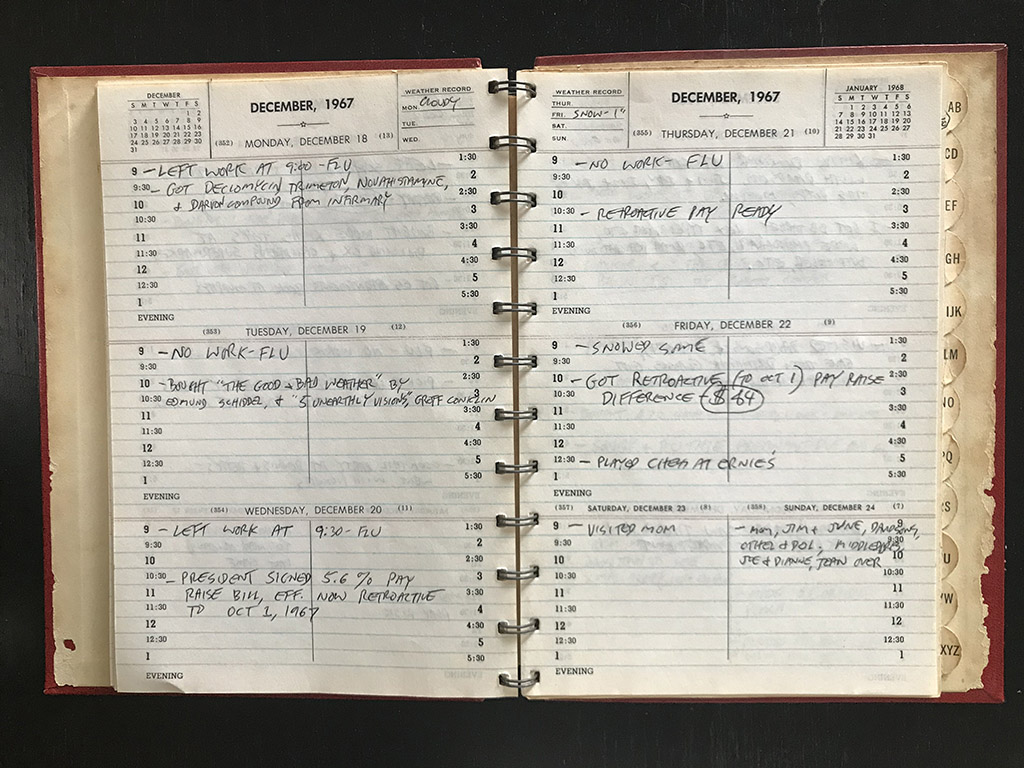 DECEMBER
S M T W T F S
1 2
3 4 5 6 7 8 9
10 11 12 13 14 15 16
17 18 19 20 21 22 23
24 25 26 27 28 29 30
31
DECEMBER, 1967
WEATHER RECORD
MON. CLOUDY
TUE.
WED.
(352) MONDAY, DECEMBER 18 (13)
9 - LEFT WORK AT 9:00 - FLU 1:30
9:30 - GOT DECLOMYCIN, TRIMETON, NOVAHISTAMINE, 2
10 & DARVON COMPOUND FROM INFIRMARY 2:30
10:30 3
11 3:30
11:30 4
12 4:30
12:30 5
1 5:30
EVENING
(353) TUESDAY, DECEMBER 19 (12)
9 - NO WORK - FLU 1:30
9:30 2
10 - BOUGHT "THE GOOD & BAD WEATHER" BY 2:30
10:30 EDMUND SCHIDDEL, & "5 UNEARTHLY VISIONS," GROFF CONKLIN 3
11 3:30
11:30 4
12 4:30
12:30 5
1 5:30
EVENING
(354) WEDNESDAY, DECEMBER 20 (11)
9 - LEFT WORK AT 9:30 - FLU 1:30
9:30 2
10 2:30
10:30 - PRESIDENT SIGNED 5.6% PAY 3
11 RAISE BILL, EFF. NOW RETROACTIVE 3:30
11:30 TO OCT 1, 1967 4
12 4:30
12:30 5
1 5:30
EVENING
WEATHER RECORD
THUR.
FRI. SNOW - 1"
SAT.
SUN.
DECEMBER, 1967
JANUARY 1968
S M T W T F S
1 2 3 4 5 6
7 8 9 10 11 12 13
14 15 16 17 18 19 20
21 22 23 24 25 26 27
28 29 30 31
(355) THURSDAY, DECEMBER 21 (10)
9 - NO WORK - FLU 1:30
9:30 2
10 2:30
10:30 - RETROACTIVE PAY READY 3
11 3:30
11:30 4
12 4:30
12:30 5
1 5:30
EVENING
(356) FRIDAY, DECEMBER 22 (9)
9 - SNOWED SOME 1:30
9:30 2
10 - GOT RETROACTIVE (TO OCT 1) PAY RAISE 2:30
10:30 DIFFERENCE - $64 3
11 3:30
11:30 4
12 4:30
12:30 - PLAYED CHESS AT ERNIE'S 5
1 5:30
EVENING
(357) SATURDAY, DECEMBER 23 (8)
9 - VISITED MOM
9:30
10
10:30
11
11:30
12
12:30
1
EVENING
(358) SUNDAY, DECEMBER 24 (7)
- MOM, JIM & JUNE, 9
OTHEL & DOL, 9:30
JOE & DIANNE, JOAN OVER 10
10:30
11
11:30
12
12:30
1
AB
CD
EF
GH
IJK
LM
NO
PQ
RS
U
VW
XYZ